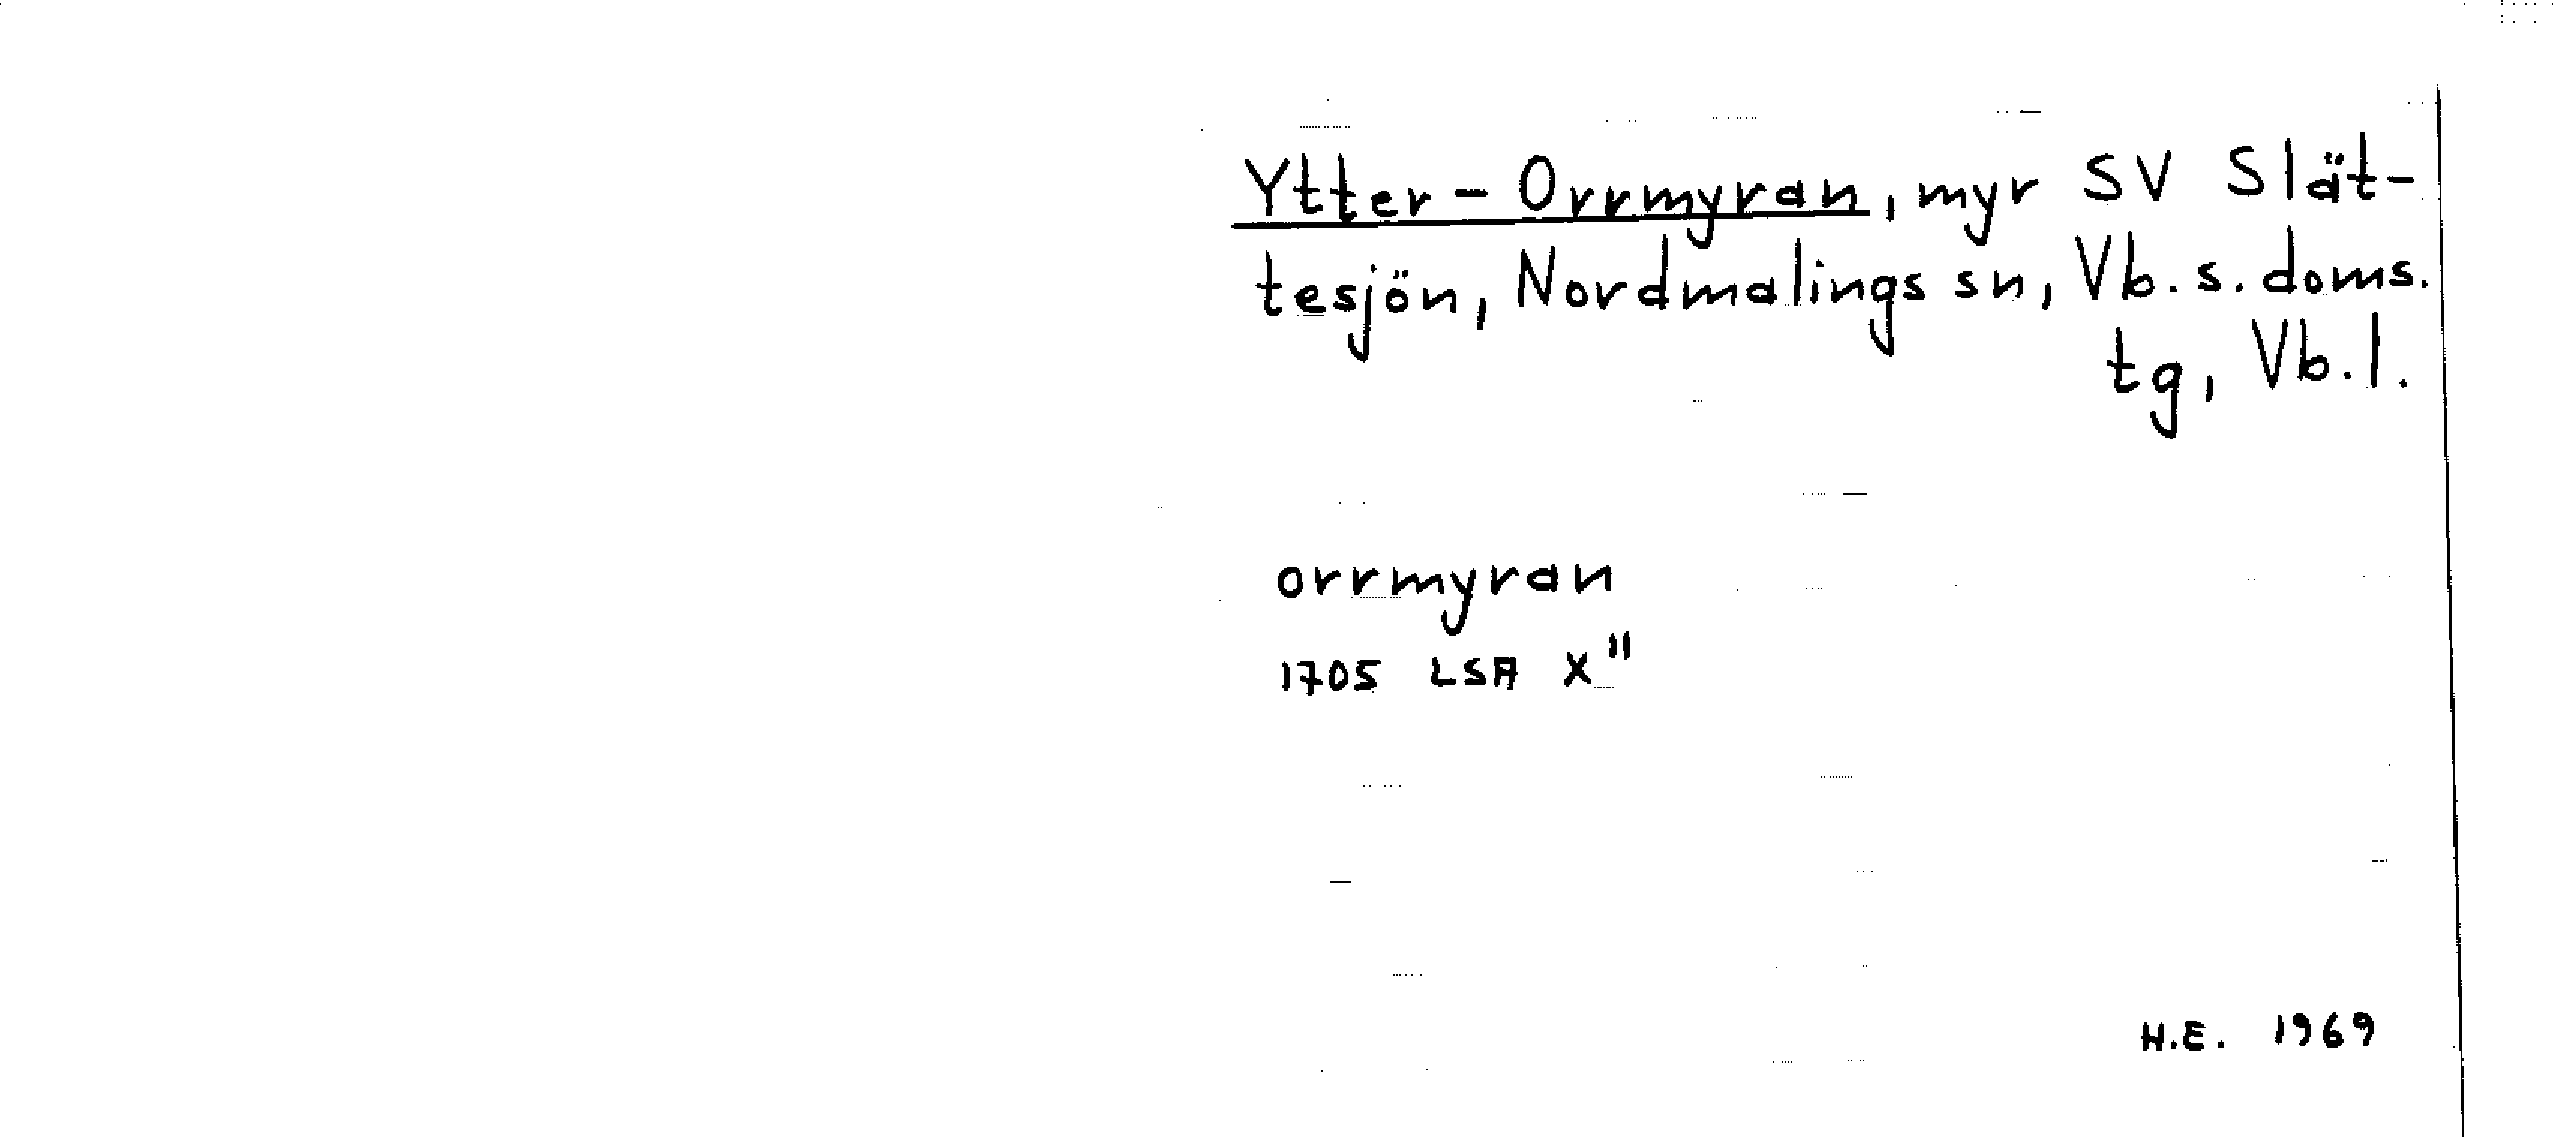 Ytter-Orrmyran, myr SV Slät-
tesjön, Nordmalings sn, Vb. s. doms.
tg, Vb. l.
orrmyran
1705 LSA X"
H.E. 1969